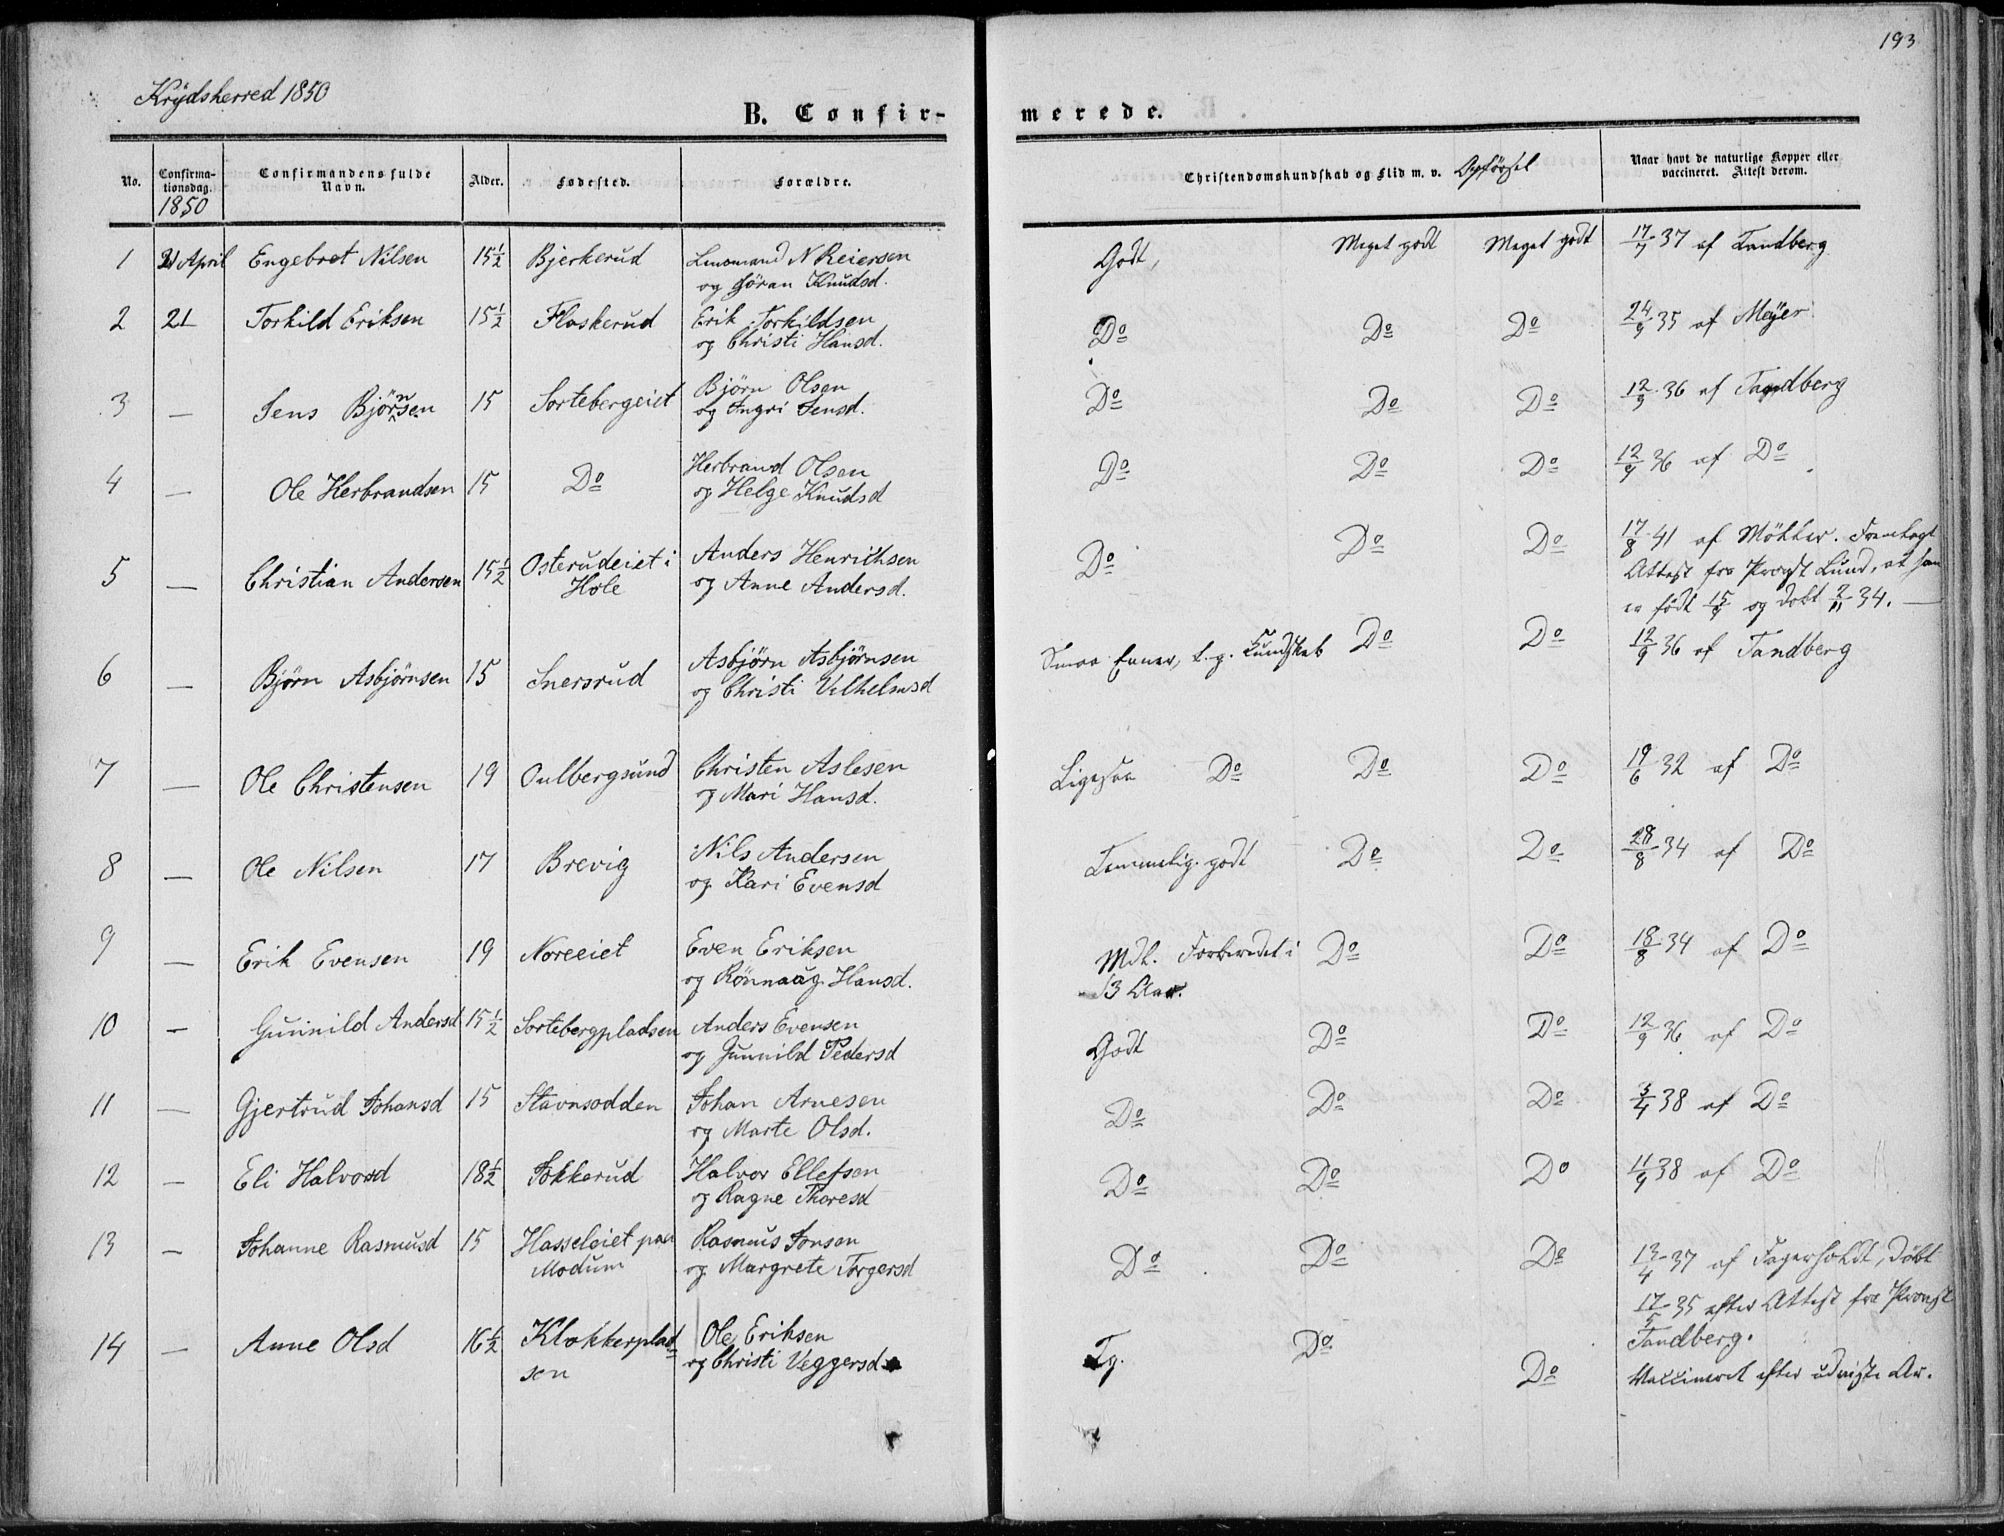 193
Krydsherred 1850
B. Confir-
merede.
No.
Confirma-
tionsdag.
1850
Confirmandens fulde
Navn.
Alder.
Fødested.
Forældre.
Christendomskundskab og Flid m. v. Opførsel
Naar havt de naturlige Kopper eller
vaccineret. Attest derom.
1 21 April Engebret Nilsen 15½ Bjerkerud Lensmand N Reiersen Godt, Meget godt Meget godt 17/7 37 af Tandberg
og Jöran Knudsd.
2 21 Torkild Eriksen 15½ Flaskerud Erik Torkildsen Do Do Do 24/9 35 af Meÿer
og Christi Hansd.
3 — Jens Björnsen 15 Sortebergeiet Björn Olsen Do Do Do 12/9 36 af Tandberg
og Ingri Jensd.
4 — Ole Herbrandsen 15 Do Herbrand Olsen Do Do Do 12/9 36 af Do
og Helge Knudsd
5 — Christian Andersen 15½ Osterudeiet i Anders Henrichsen Do Do Do 17/8 41 af Fremlagt
Hole og Anne Andersd. Attest fra Provst Lund, at han
er født 15/9 og døbt 2/11 34. —
6 — Björn Asbjörnsen 15 Snersrud Asbjörn Asbjörnsen Smaa Evner, t. g. Kundskab Do Do 12/9 36 af Tandberg
og Christi Vilhelmsd
7 — Ole Christensen 19 Gulbergsund Christen Aslesen Ligesaa Do Do Do 19/6 32 af Do
og Mari Hansd.
8 — Ole Nilsen 17 Brevig Nils Andersen Temmelig godt Do Do 28/8 34 af Do
og Kari Evensd
9 — Erik Evensen 19 Noreeiet Even Eriksen Mdl. Forberedet i Do Do 18/8 34 af Do
og Rönnaug Hansd. 3 Aar.
10 — Gunnild Andersd 15½ Sortebergpladsen Anders Evensen Godt Do Do 12/9 36 af Do
og Gunnild Pedersd
11 — Gjertrud Johansd 15 Stavnsodden Johan Arnesen Do Do Do 3/4 38 af Do
og Marte Olsd.
12 — Eli Halvorsd 18½ Tokkerud Halvor Ellefsen Do Do Do 11/9 38 af Do
og Ragne Thoresd
13 — Johanne Rasmusd 15 Hasseleiet paa Rasmus Jonsen Do Do Do 13/4 37 af Fagerholdt, døbt
Modum og Margrete Torgersd 17/5 35 efter Attest fra Provst
Tandberg.
14 — Anne Olsd 16½ Klokkerplad- Ole Eriksen Tg. Do Do Vaccineret efter udviste Ar.
sen og Christi Veggersd